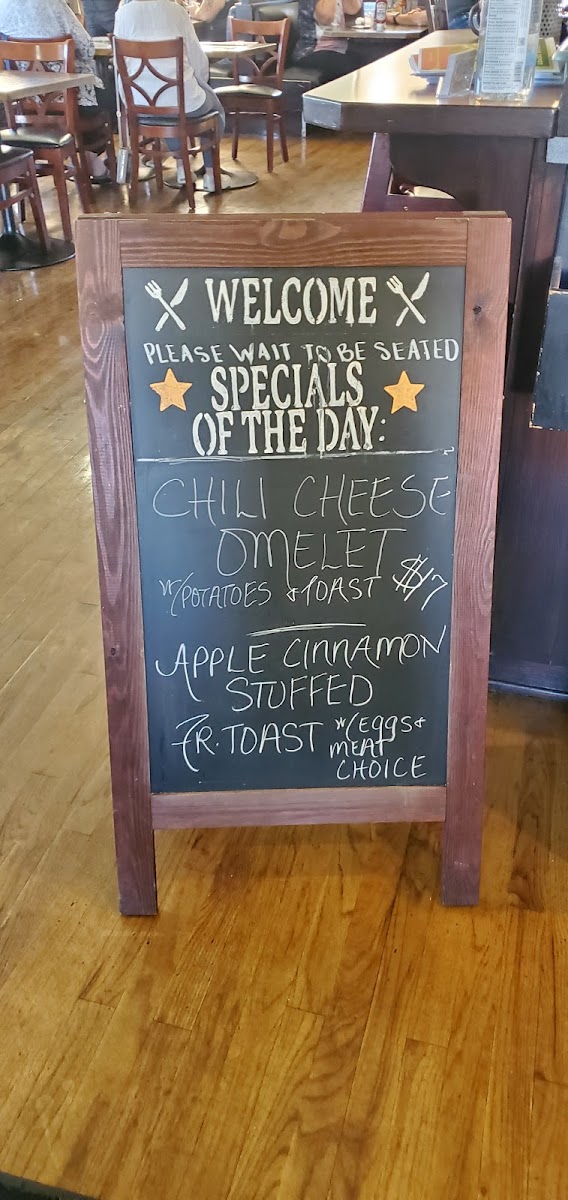 WELCOME
PLEASE WAIT TO BE SEATED
SPECIALS
OF THE DAY:
CHILI CHEESE
OMELET
W/POTATOES & TOAST $17
APPLE CINNAMON
STUFFED
FR. TOAST W/EGGS &
MEAT
CHOICE